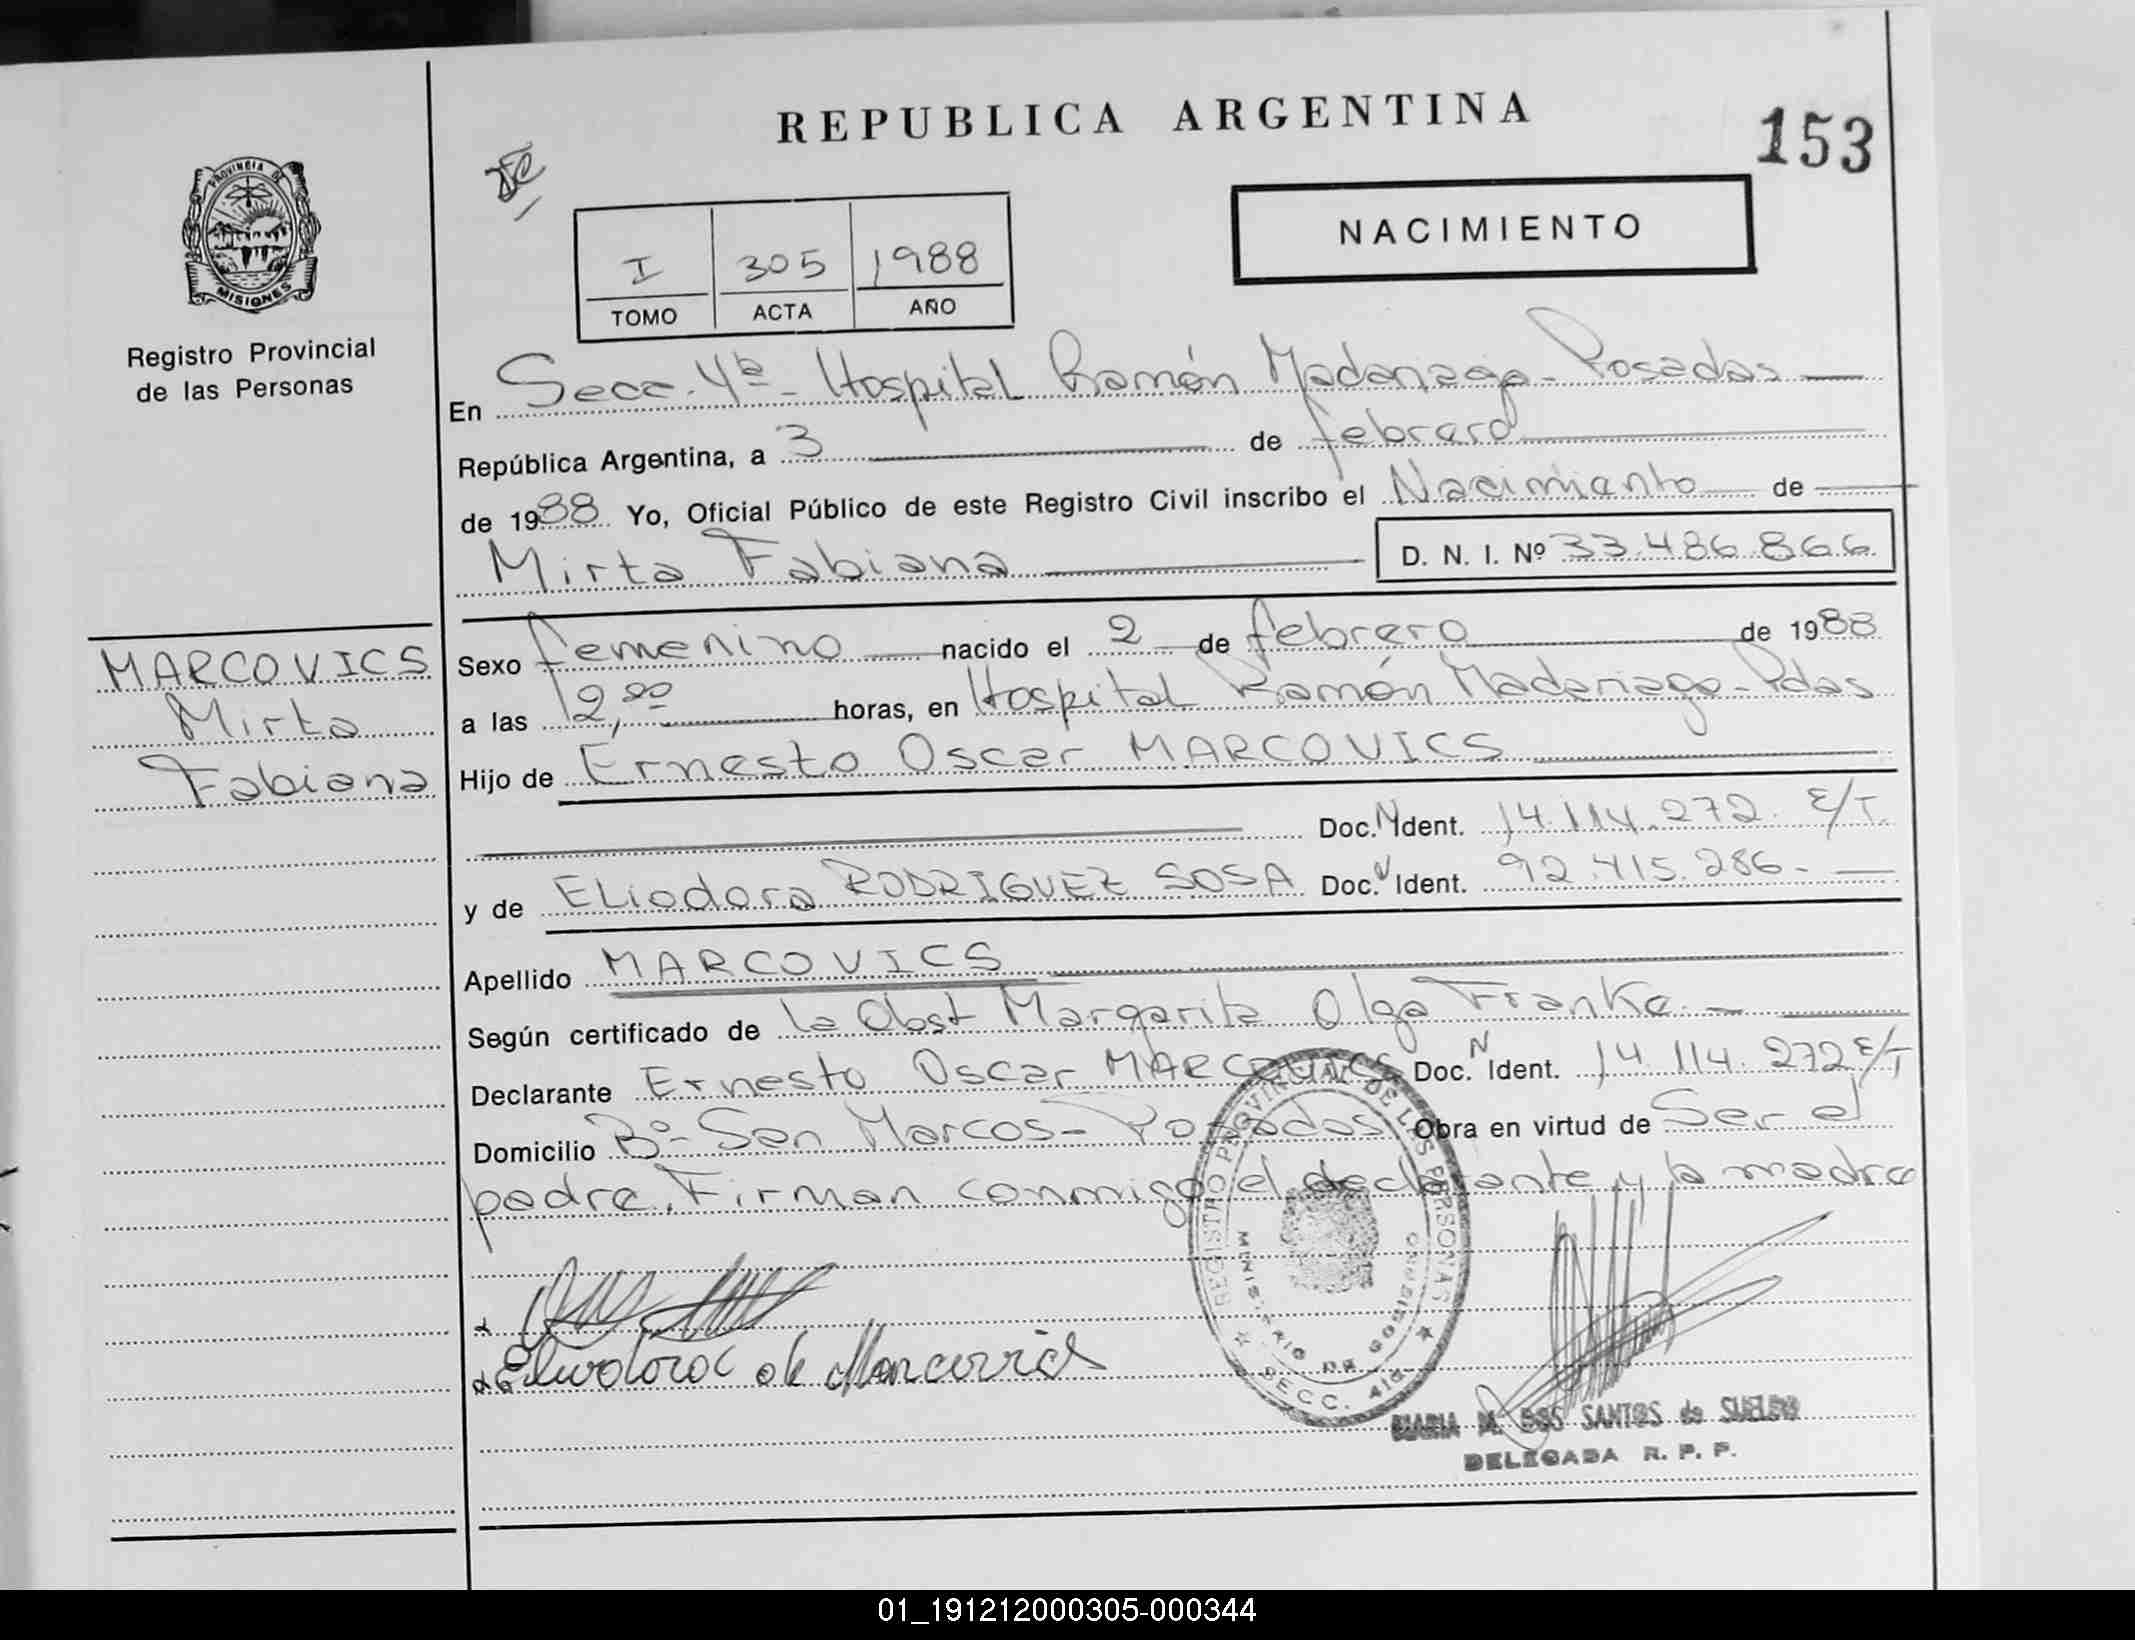 REPUBLICA ARGENTINA
153
PROVINCIA DE
MISIONES
Registro Provincial
de las Personas
I 305 1988
TOMO ACTA AÑO
NACIMIENTO
En Secc. 4ta - Hospital Ramón Madariaga - Posadas
República Argentina, a 3 de febrero
de 1988 Yo, Oficial Público de este Registro Civil inscribo el Nacimiento de
Mirta Fabiana D. N. I. Nº 33.486.866
MARCOVICS
Mirta
Fabiana
Sexo femenino nacido el 2 de febrero de 1988
a las 12,00 horas, en Hospital Ramón Madariaga - Pdas
Hijo de Ernesto Oscar MARCOVICS
Doc. N Ident. 14.114.272 E/T.
y de ELiodora RODRIGUEZ SOSA Doc. Ident. 92.415.286.-
Apellido MARCOVICS
Según certificado de la Obst Margarita Olga Franke.-
Declarante Ernesto Oscar MARCOVICS Doc. N Ident. 14.114.272 E/T
Domicilio Bº- San Marcos - Posadas Obra en virtud de Ser el
padre. Firman conmigo el declarante y la madre
Eliodora de Marcovics
REGISTRO PROVINCIAL DE LAS PERSONAS
MINISTERIO DE GOBIERNO
SECC. 4ta
MARIA M. DOS SANTOS de SUELDO
DELEGADA R. P. P.
01_191212000305-000344